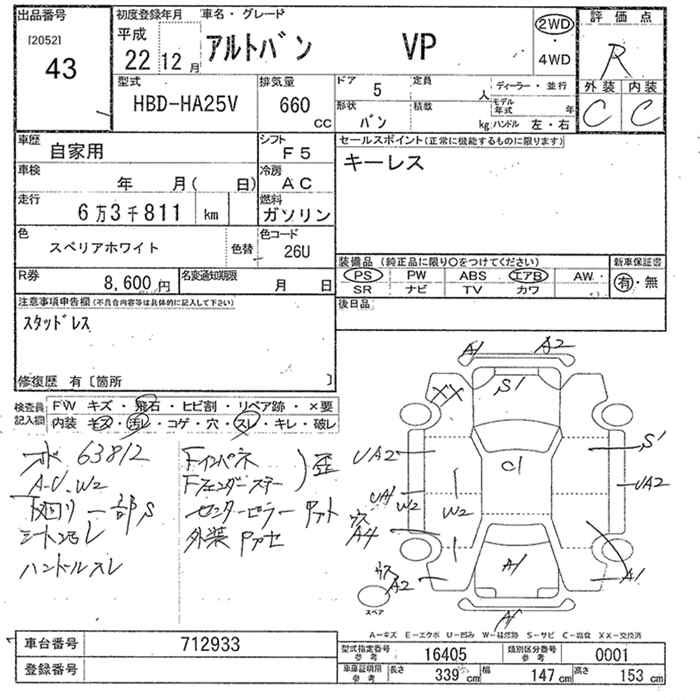 出品番号
[2052]
43
初度登録年月
平成
22 12月
車名・グレード
アルトバン VP
2WD
4WD
評価点
R
外装 内装
C C
型式
HBD-HA25V
排気量
660
CC
ドア
5
定員
人
形状
バン
積載
kg
ディーラー・並行
モデル年式 年
ハンドル 左・右
車歴
自家用
シフト
F5
車検
年 月( 日)
冷房
AC
走行
6万3千811 km
燃料
ガソリン
色
スペリアホワイト
色替
色コード
26U
R券
8,600円
名変通知期限
月 日
セールスポイント(正常に機能するものに限ります)
キーレス
装備品 (純正品に限り○をつけてください)
PS PW ABS エアB AW
SR ナビ TV カワ
新車保証書
有・無
後日品
注意事項申告欄(不具合内容等は具体的に記入して下さい)
スタッドレス
修復歴 有〔箇所 〕
検査員記入欄
FW キズ・飛石・ヒビ割・リペア跡・×要
内装 キズ・汚レ・コゲ・穴・スレ・キレ・破レ
63812
A-U.W2
下回り一部S
ハンドルスレ
Fインパネ
センターピラー
歪
A1 A2
XX
S1
C1
UA2
S1
UA1
W2
W2
UA2
A4
A1
A1
A2
スペア
A-キズ E-エクボ U-凹み W-補修跡 S-サビ C-腐食 XX-交換済
車台番号
712933
登録番号
型式指定番号 参考
16405
類別区分番号 参考
0001
車庫証明用 参考
長さ 339cm 幅 147cm 高さ 153cm